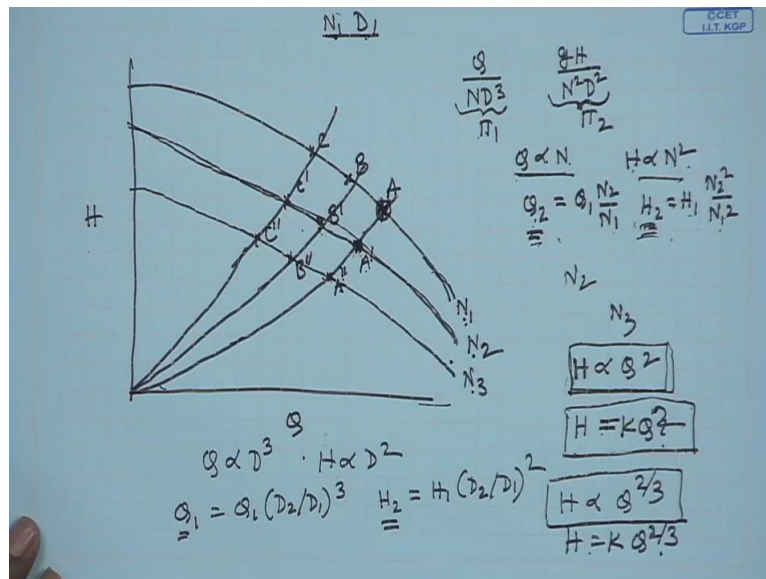 N₁ D₁
©CET
I.I.T. KGP
Q / ND³ gH / N²D²
π₁ π₂
Q ∝ N H ∝ N²
Q₂ = Q₁ N₂/N₁ H₂ = H₁ N₂²/N₁²
N₂
N₃
H ∝ Q²
H = KQ²
H ∝ Q^2/3
H = K Q^2/3
H
C B A
C' B' A'
C'' B'' A''
N₁
N₂
N₃
Q
Q ∝ D³ · H ∝ D²
Q₁ = Q₁ (D₂/D₁)³ H₂ = H₁ (D₂/D₁)²